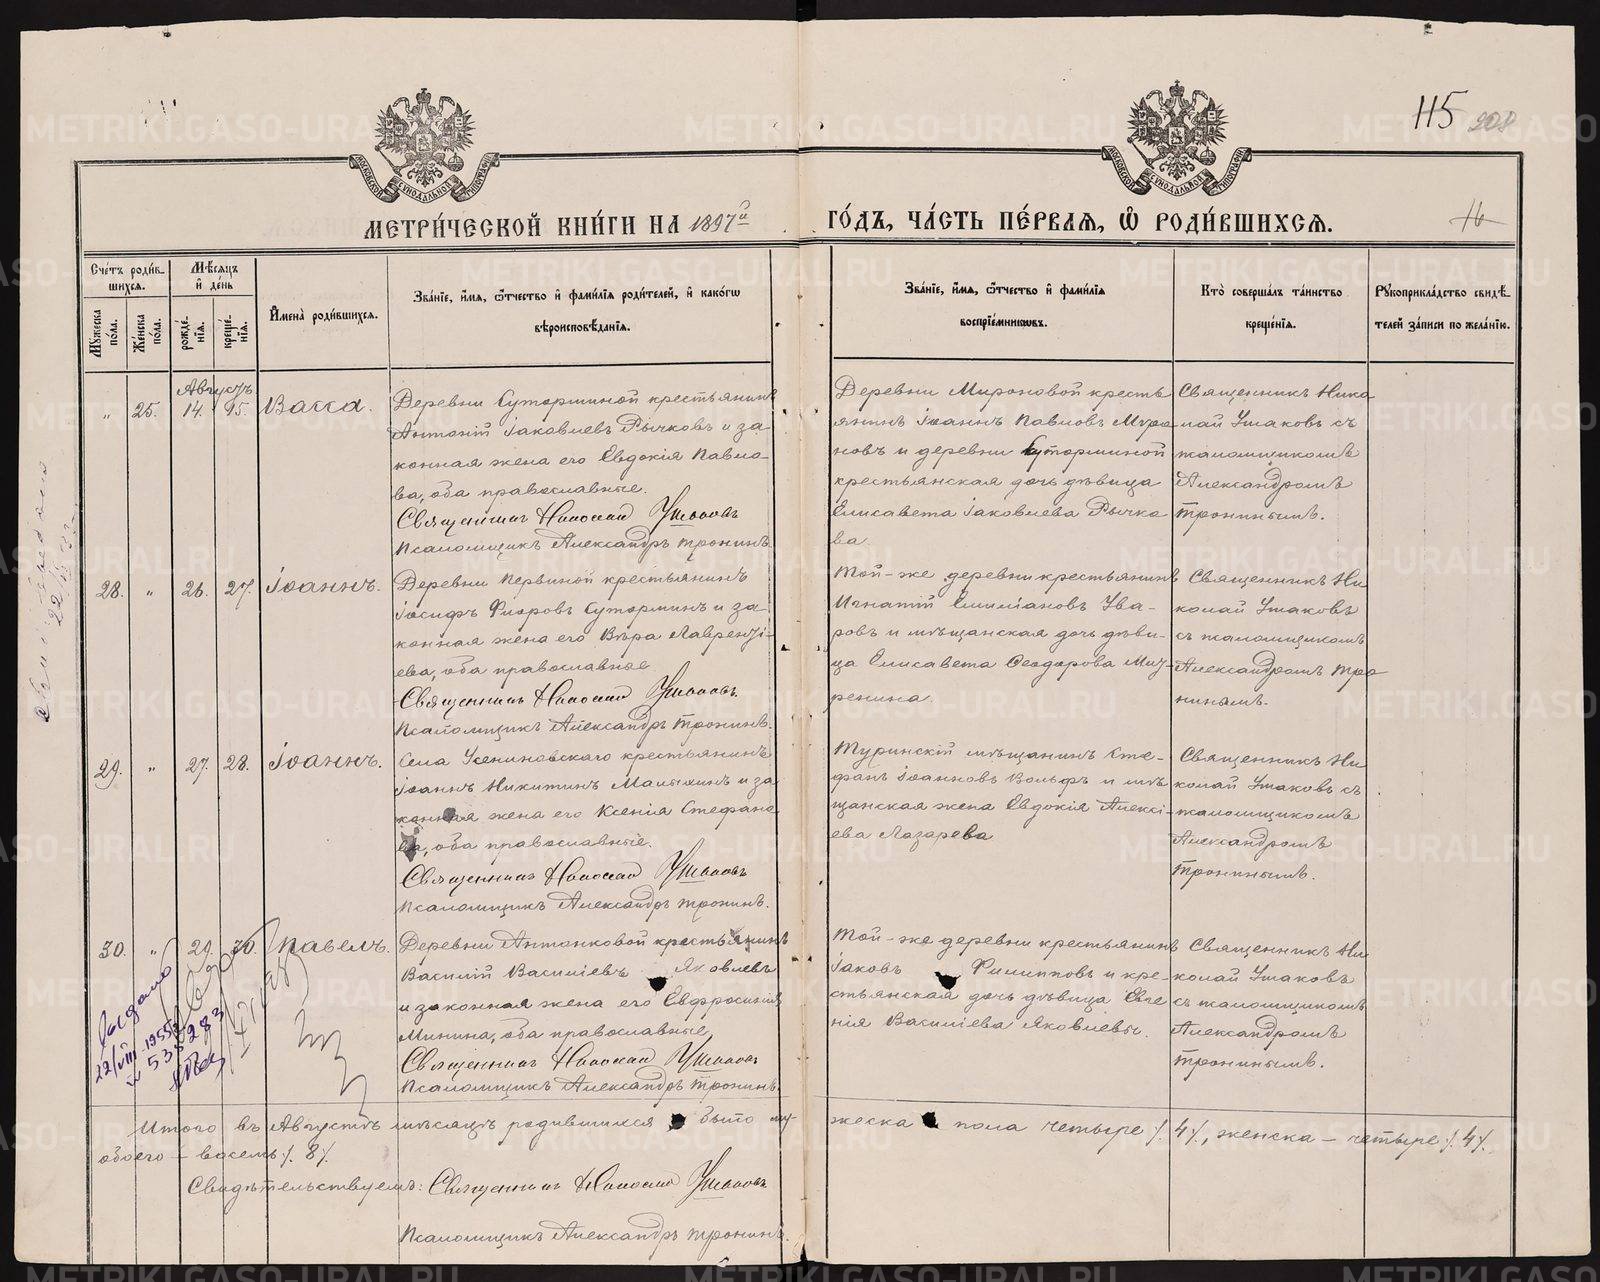 115 208
МЕТРИ́ЧЕСКОЙ КНИ́ГИ НА 1897й ГО́ДЪ, ЧА́СТЬ ПЕ́РВАЯ, Ѡ҆ РОДИ́ВШИХСЯ.
16
Сче́тъ роди́в-
шихся.
Мꙋ́жеска по́ла.
Же́нска по́ла.
Мѣ́сяцъ и҆ де́нь
рожде́-
нїя.
креще́-
нїя.
И҆мена̀ роди́вшихся.
Зва́нїе, и҆́мя, ѻ҆́тчество и҆ фами́лїя роди́телей, и҆ како́гѡ
вѣроисповѣ́данїя.
Зва́нїе, и҆́мя, ѻ҆́тчество и҆ фами́лїя
воспрїе́мникѡвъ.
Кто̀ соверша́лъ та́инство
креще́нїя.
Рꙋкоприкла́дство свидѣ́-
телей за́писи по жела́нїю.
Августъ
" 25. 14. 15. Васса.
Деревни Суторминой крестьянинъ
Антонiй Iаковлевъ Рычковъ и за-
конная жена его Евдокiя Павло-
ва, оба православные.
Священникъ Николай Ушаковъ
Псаломщикъ Александръ Тронинъ.
Деревни Мироновой кресть-
янинъ Iоаннъ Павловъ Миро-
новъ и деревни Суторминой
крестьянская дочь дѣвица
Елисавета Iаковлева Рычко-
ва.
Священникъ Нико-
лай Ушаковъ съ
псаломщикомъ
Александромъ
Тронинымъ.
28. " 26. 27. Iоаннъ.
Деревни Первиной крестьянинъ
Iосифъ Флоровъ Сутorминъ и за-
конная жена его Вѣра Лаврентi-
ева, оба православные.
Священникъ Николай Ушаковъ.
Псаломщикъ Александръ Тронинъ.
Той-же деревни крестьянинъ
Игнатiй Емилiановъ Ува-
ровъ и мѣщанская дочь дѣви-
ца Елисавета Ѳеодорова Мич-
ренина.
Священникъ Ни-
колай Ушаковъ
съ псаломщикомъ
Александромъ Тро-
нинымъ.
29. " 27. 28. Iоаннъ.
Села Усениновскаго крестьянинъ
Iоаннъ Никитинъ Малыхинъ и за-
конная жена его Ксенiя Стефано-
ва, оба православные.
Священникъ Николай Ушаковъ
Псаломщикъ Александръ Тронинъ.
Туринскiй мѣщанинъ Сте-
фанъ Iоанновъ Вольфъ и мѣ-
щанская жена Евдокiя Алексi-
ева Лазарева
Священникъ Ни-
колай Ушаковъ съ
псаломщикомъ
Александромъ
Тронинымъ.
30. " 29. 30. Павелъ.
Деревни Антонковой крестьянинъ
Василiй Василiевъ Яковлевъ
и законная жена его Евфросинiя
Минина, оба православные.
Священникъ Николай Ушаковъ
Псаломщикъ Александръ Тронинъ.
Той-же деревни крестьянинъ
Iаковъ Филипповъ и кре-
стьянская дочь дѣвица Евге-
нiя Василiева Яковлевы.
Священникъ Ни-
колай Ушаковъ
съ псаломщикомъ
Александромъ
Тронинымъ.
22/VIII-1955
Итого въ Августѣ мѣсяцѣ родившихся было му-
жеска пола четыре /. 4 /., женска – четыре /. 4 /.
обоего – восемь /. 8 /.
Свидѣтельствуемъ: Священникъ Николай Ушаковъ
Псаломщикъ Александръ Тронинъ.
METRIKI.GASO-URAL.RU